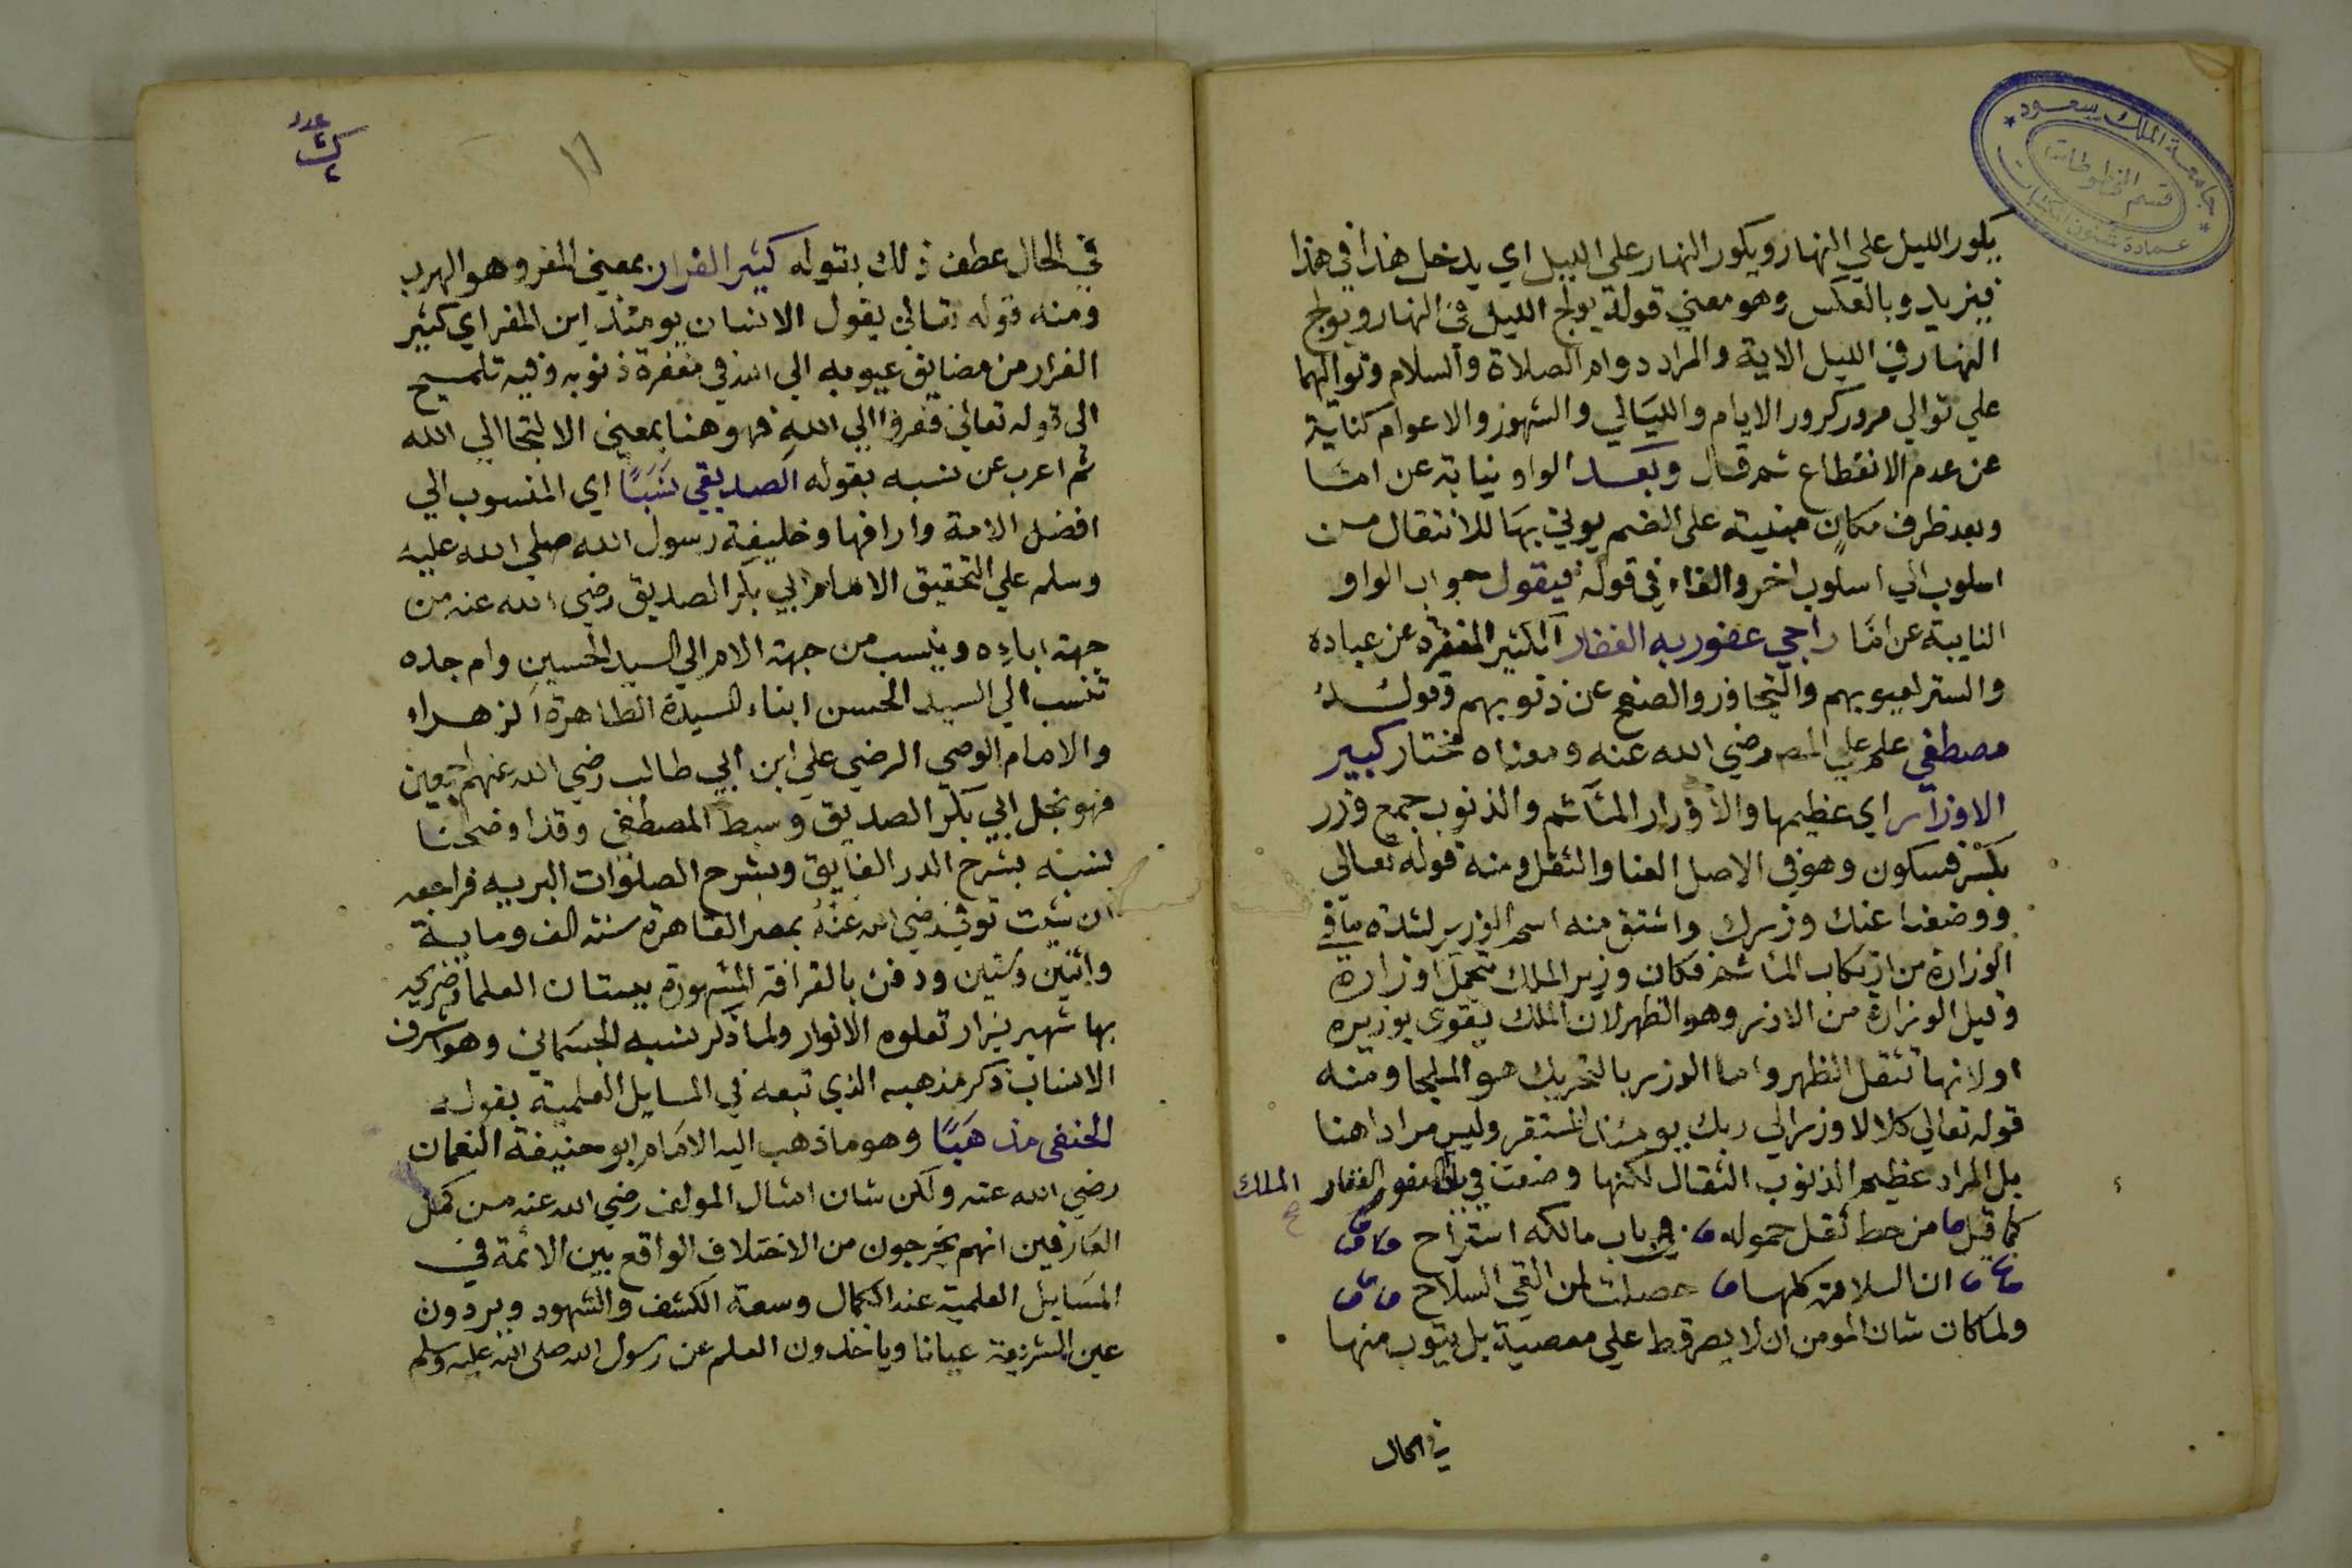 جامعة الملك سعود
قسم المخطوطات
عمادة شئون المكتبات
يكور الليل علي النهار ويكور النهار علي الليل اي يدخل هذا في هذا
فيزيد وبالعكس وهو معني قوله يولج الليل في النهار ويولج
النهار في الليل الاية والمراد دوام الصلاة والسلام وتواليهما
علي توالي مرور كرور الايام والليالي والشهور والاعوام كناية
عن عدم الانقطاع ثم قال وبعد الواو نيابة عن امّا
وبعد ظرف مكان مبنية على الضم يوتي بها للانتقال من
اسلوب الي اسلوب اخر والفاء في قوله فيقول جواب الواو
النايبة عن امّا راجي عفو ربه الغفار الكثير المغفرة عن عباده
والستر لعيوبهم والتجاوز والصفح عن ذنوبهم وقوله
مصطفي علم علي المص رضي الله عنه ومعناه مختار كبير
الاوزار اي عظيمها والاوزار المآثم والذنوب جمع وزر
بكسر فسكون وهو في الاصل العنا والثقل ومنه قوله تعالى
ووضعنا عنك وزرك واشتق منه اسم الوزير لشدة ما في
الوزارة من ارتكاب المآثم فكان وزير الملك تحمل اوزاره
وقيل الوزارة من الازر وهو الظهر لان الملك يتقوى بوزيره
او لانها تثقل الظهر واما الوزر بالتحريك هو الملجا ومنه
قوله تعالي كلا لا وزر الي ربك يومئذ المستقر وليس مرادا هنا
بل المراد عظيم الذنوب الثقال لكنها وضعت في باب العفو الغفار الملك
كما قيل من حط ثقل حموله في باب مالكه استراح
ان السلامة كلها حصلت لمن القي السلاح
ولما كان شان المومن ان لا يصر قط علي معصية بل يتوب منها
في الحال
١٦
في الحال عطف ذلك بقوله كثير الفرار بمعني المفر وهو الهرب
ومنه قوله تعالي يقول الانسان يومئذ اين المفر اي كثير
الفرار من مضايق عيوبه الي الله في مغفرة ذنوبه وفيه تلميح
الى قوله تعالي ففروا الي الله فهو هنا بمعني الالتجا الي الله
ثم اعرب عن نسبه بقوله الصديقي نسبًا اي المنسوب الي
افضل الامة وارافها وخليفة رسول الله صلي الله عليه
وسلم علي التحقيق الامام ابي بكر الصديق رضي الله عنه من
جهة اباءه وينسب من جهة الام الي السيد الحسين وام جده
تنسب الي السيد الحسن ابناء السيدة الطاهرة الزهراء
والامام الوصي الرضي علي ابن ابي طالب رضي الله عنهم اجمعين
فهو نجل ابي بكر الصديق وسبط المصطفي وقد اوضحنا
نسبه بشرح الدر الفايق وبشرح الصلوات البريه فراجعه
ان شئت توفي رضي الله عنه بمصر القاهرة سنة الف وماية
واثنين وستين ودفن بالقرافة المشهورة ببستان العلما وضريحه
بها شهير يزار تعلوه الانوار ولما ذكر نسبه الجسماني وهو اشرف
الانساب ذكر مذهبه الذي تبعه في المسايل العلمية بقوله
الحنفى مذهبًا وهو ما ذهب اليه الامام ابو حنيفة النعمان
رضي الله عنه ولكن شان امثال المولف رضي الله عنه من كمل
العارفين انهم يخرجون من الاختلاف الواقع بين الائمة في
المسايل العلمية عند الكمال وسعة الكشف والشهود ويردون
عين الشريعة عيانا وياخذون العلم عن رسول الله صلى الله عليه وسلم